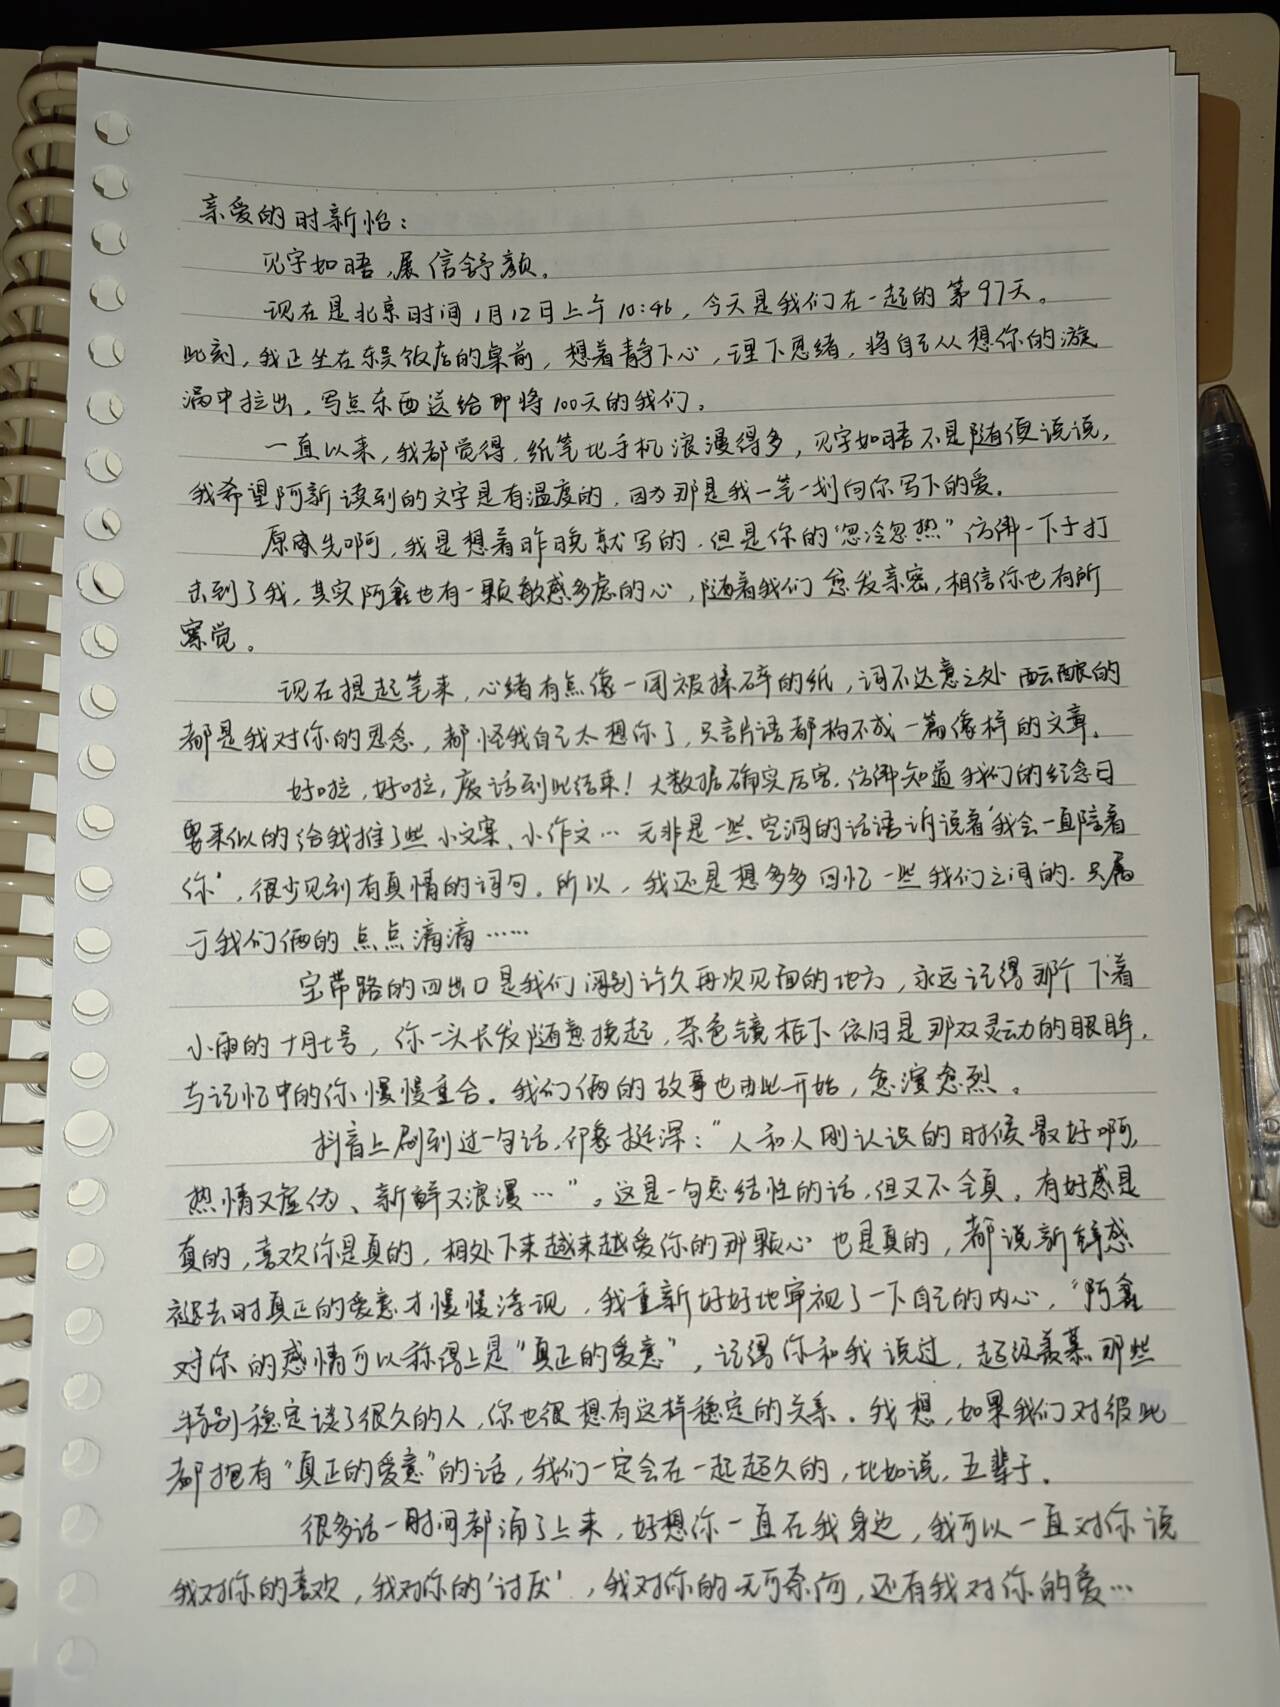 亲爱的时新怡：
见字如晤，展信舒颜。
现在是北京时间1月12日上午10:46，今天是我们在一起的第97天。
此刻，我正坐在东吴饭店的桌前，想着静下心，理下思绪，将自己从想你的漩
涡中拉出，写点东西送给即将100天的我们。
一直以来，我都觉得，纸笔比手机浪漫得多，见字如晤不是随便说说，
我希望阿新读到的文字是有温度的，因为那是我一笔一划向你写下的爱。
原本先啊，我是想着昨晚就写的，但是你的“忽冷忽热”仿佛一下子打
击到了我，其实阿鑫也有一颗敏感多虑的心，随着我们愈发亲密，相信你也有所
察觉。
现在提起笔来，心绪有点像一团被揉碎的纸，词不达意之处酝酿的
都是我对你的思念，都怪我自己太想你了，只言片语都构不成一篇像样的文章。
好啦，好啦，废话到此结束！大数据确实厉害，仿佛知道我们的纪念日
要来似的给我推了些小文案、小作文… 无非是一些空洞的话语诉说着‘我会一直陪着
你’，很少见到有真情的词句。所以，我还是想多多回忆一些我们之间的、只属
于我们俩的点点滴滴……
宝带路的四出口是我们阔别许久再次见面的地方，永远记得那个下着
小雨的十月七号，你一头长发随意挽起，茶色镜框下依旧是那双灵动的眼眸，
与记忆中的你慢慢重合。我们俩的故事也由此开始，愈演愈烈。
抖音上刷到过一句话，印象挺深：“人和人刚认识的时候最好啊，
热情又虚伪、新鲜又浪漫…”。这是一句总结性的话，但又不全真，有好感是
真的，喜欢你是真的，相处下来越来越爱你的那颗心也是真的，都说新鲜感
褪去时真正的爱意才慢慢浮现，我重新好好地审视了一下自己的内心，“阿鑫
对你的感情可以称得上是“真正的爱意”，记得你和我说过，超级羡慕那些
特别稳定谈了很久的人，你也很想有这样稳定的关系。我想，如果我们对彼此
都抱有“真正的爱意”的话，我们一定会在一起超久的，比如说，五辈子。
很多话一时间都涌了上来，好想你一直在我身边，我可以一直对你说
我对你的喜欢，我对你的‘讨厌’，我对你的无可奈何，还有我对你的爱…